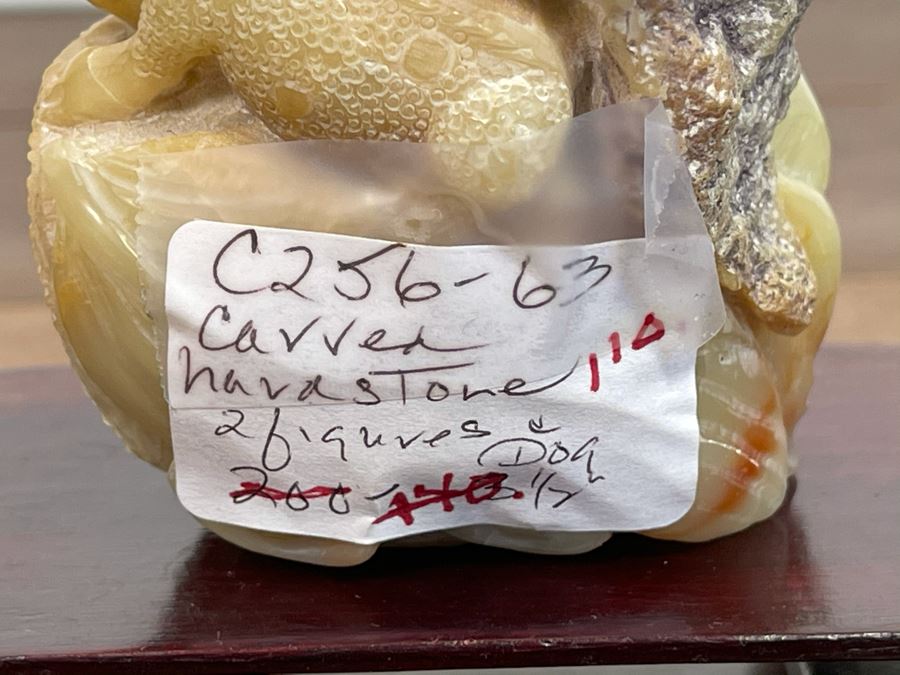 C256-63
Carved
hardstone 110
2 figures w Dog
200- 140. 3 1/2"